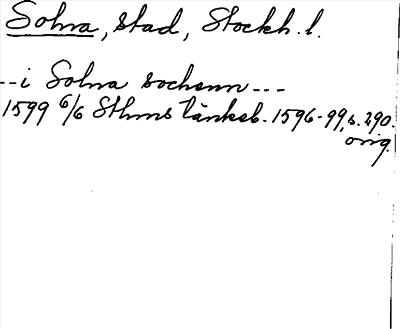 Solna, stad, Stockh. l.
--i Solna sochenn---
1599 6/6 Sthms tänkeb. 1596-99, s. 290.
orig.